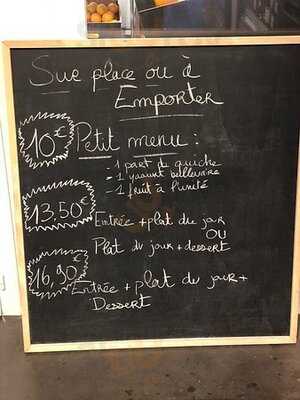 Sur place ou à
Emporter
10€ Petit menu :
- 1 part de quiche
- 1 yaourt bellevaire
- 1 fruit à l'unité
13.50€
Entrée + plat du jour
OU
Plat du jour + dessert
16,90€
Entrée + plat du jour +
Dessert